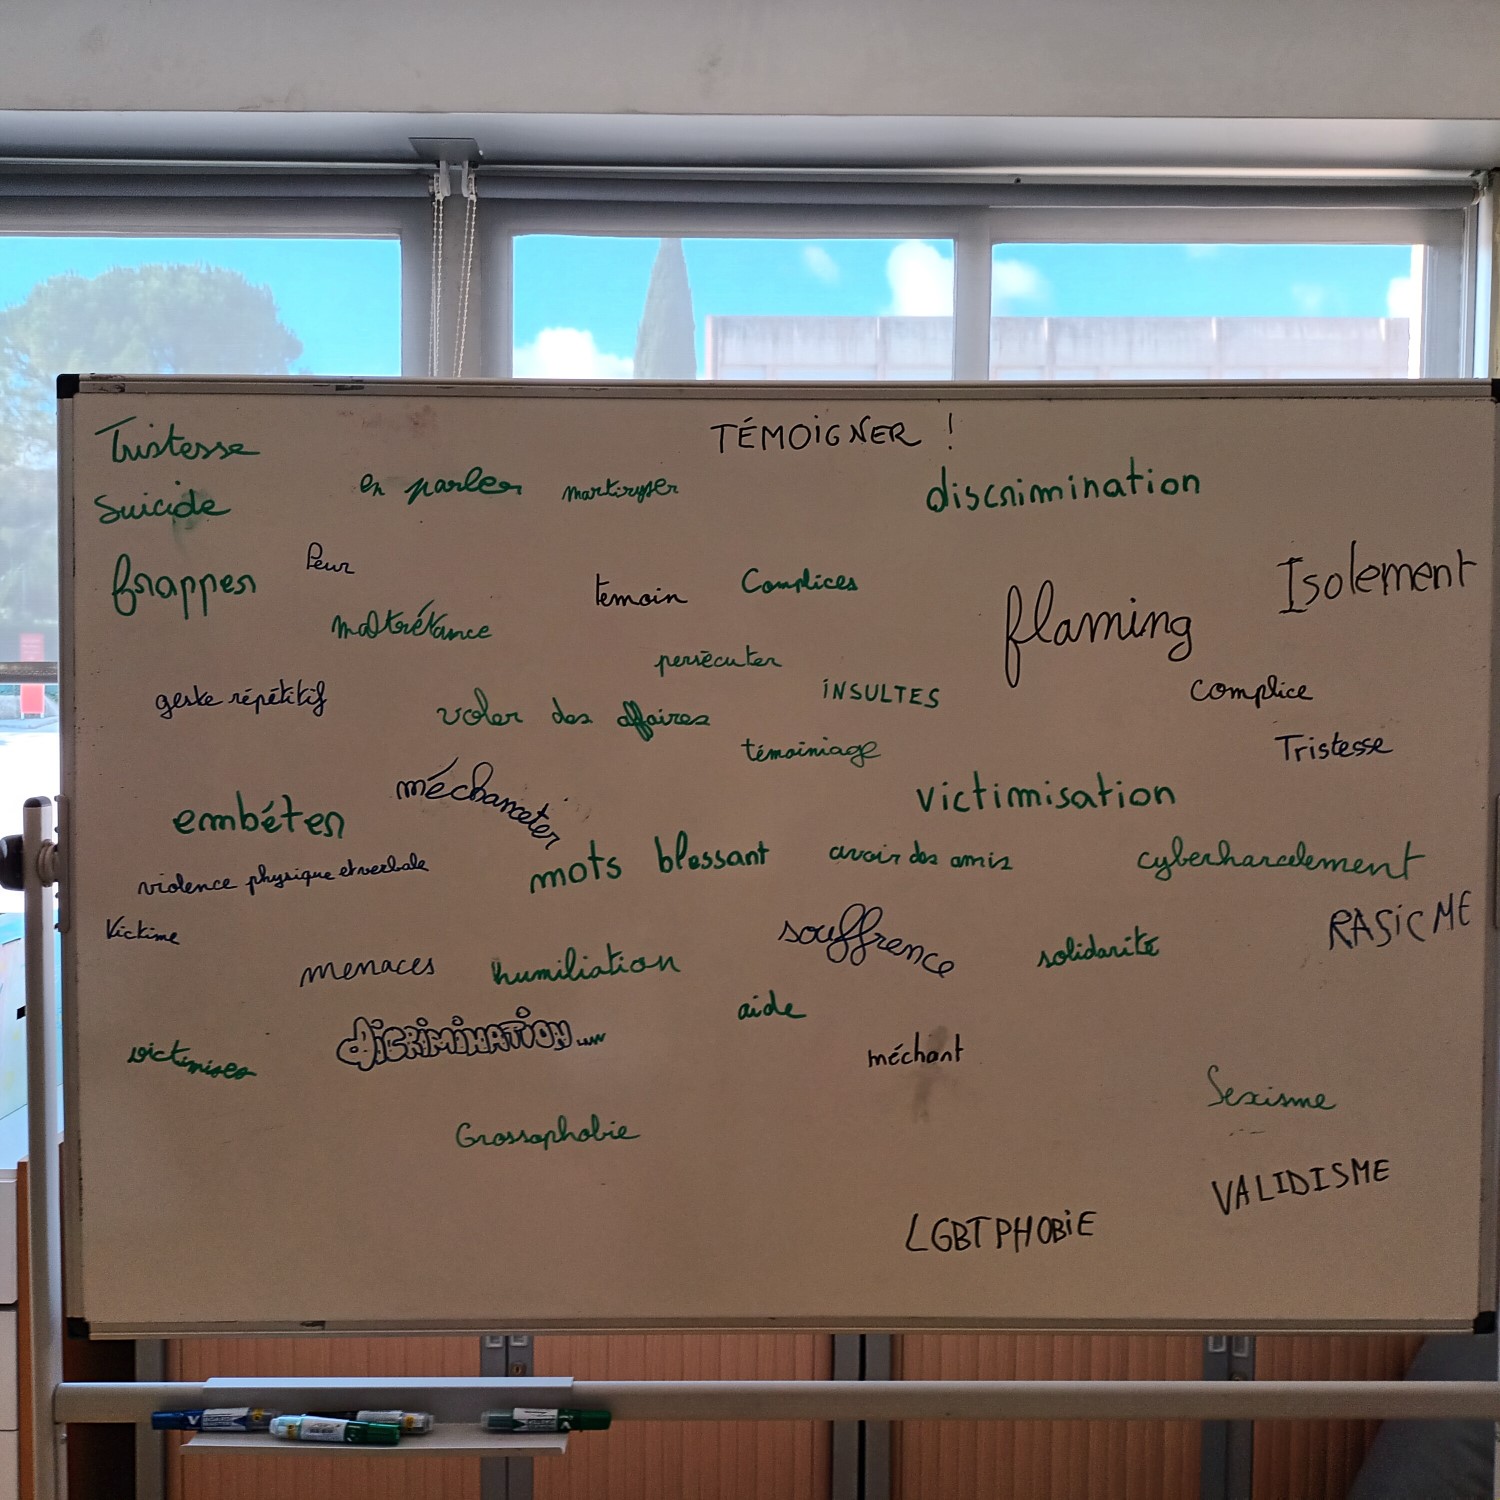 TÉMOIGNER !
Tristesse
en parler
martiryser
discrimination
Suicide
Peur
frapper
temoin
Complices
flaming
Isolement
maltrétance
persècuter
geste répétitif
voler des affaires
iNSULTES
complice
témoiniage
Tristesse
méchanceter
embéter
victimisation
violence physique et verbale
mots blessant
avoir des amis
cyberharcelement
Victime
souffrence
solidarité
RASiCME
menaces
humiliation
aide
diCRiMiNATiON...
victimiser
méchant
Sexisme
Grossophobie
VALIDISME
LGBTPHOBiE